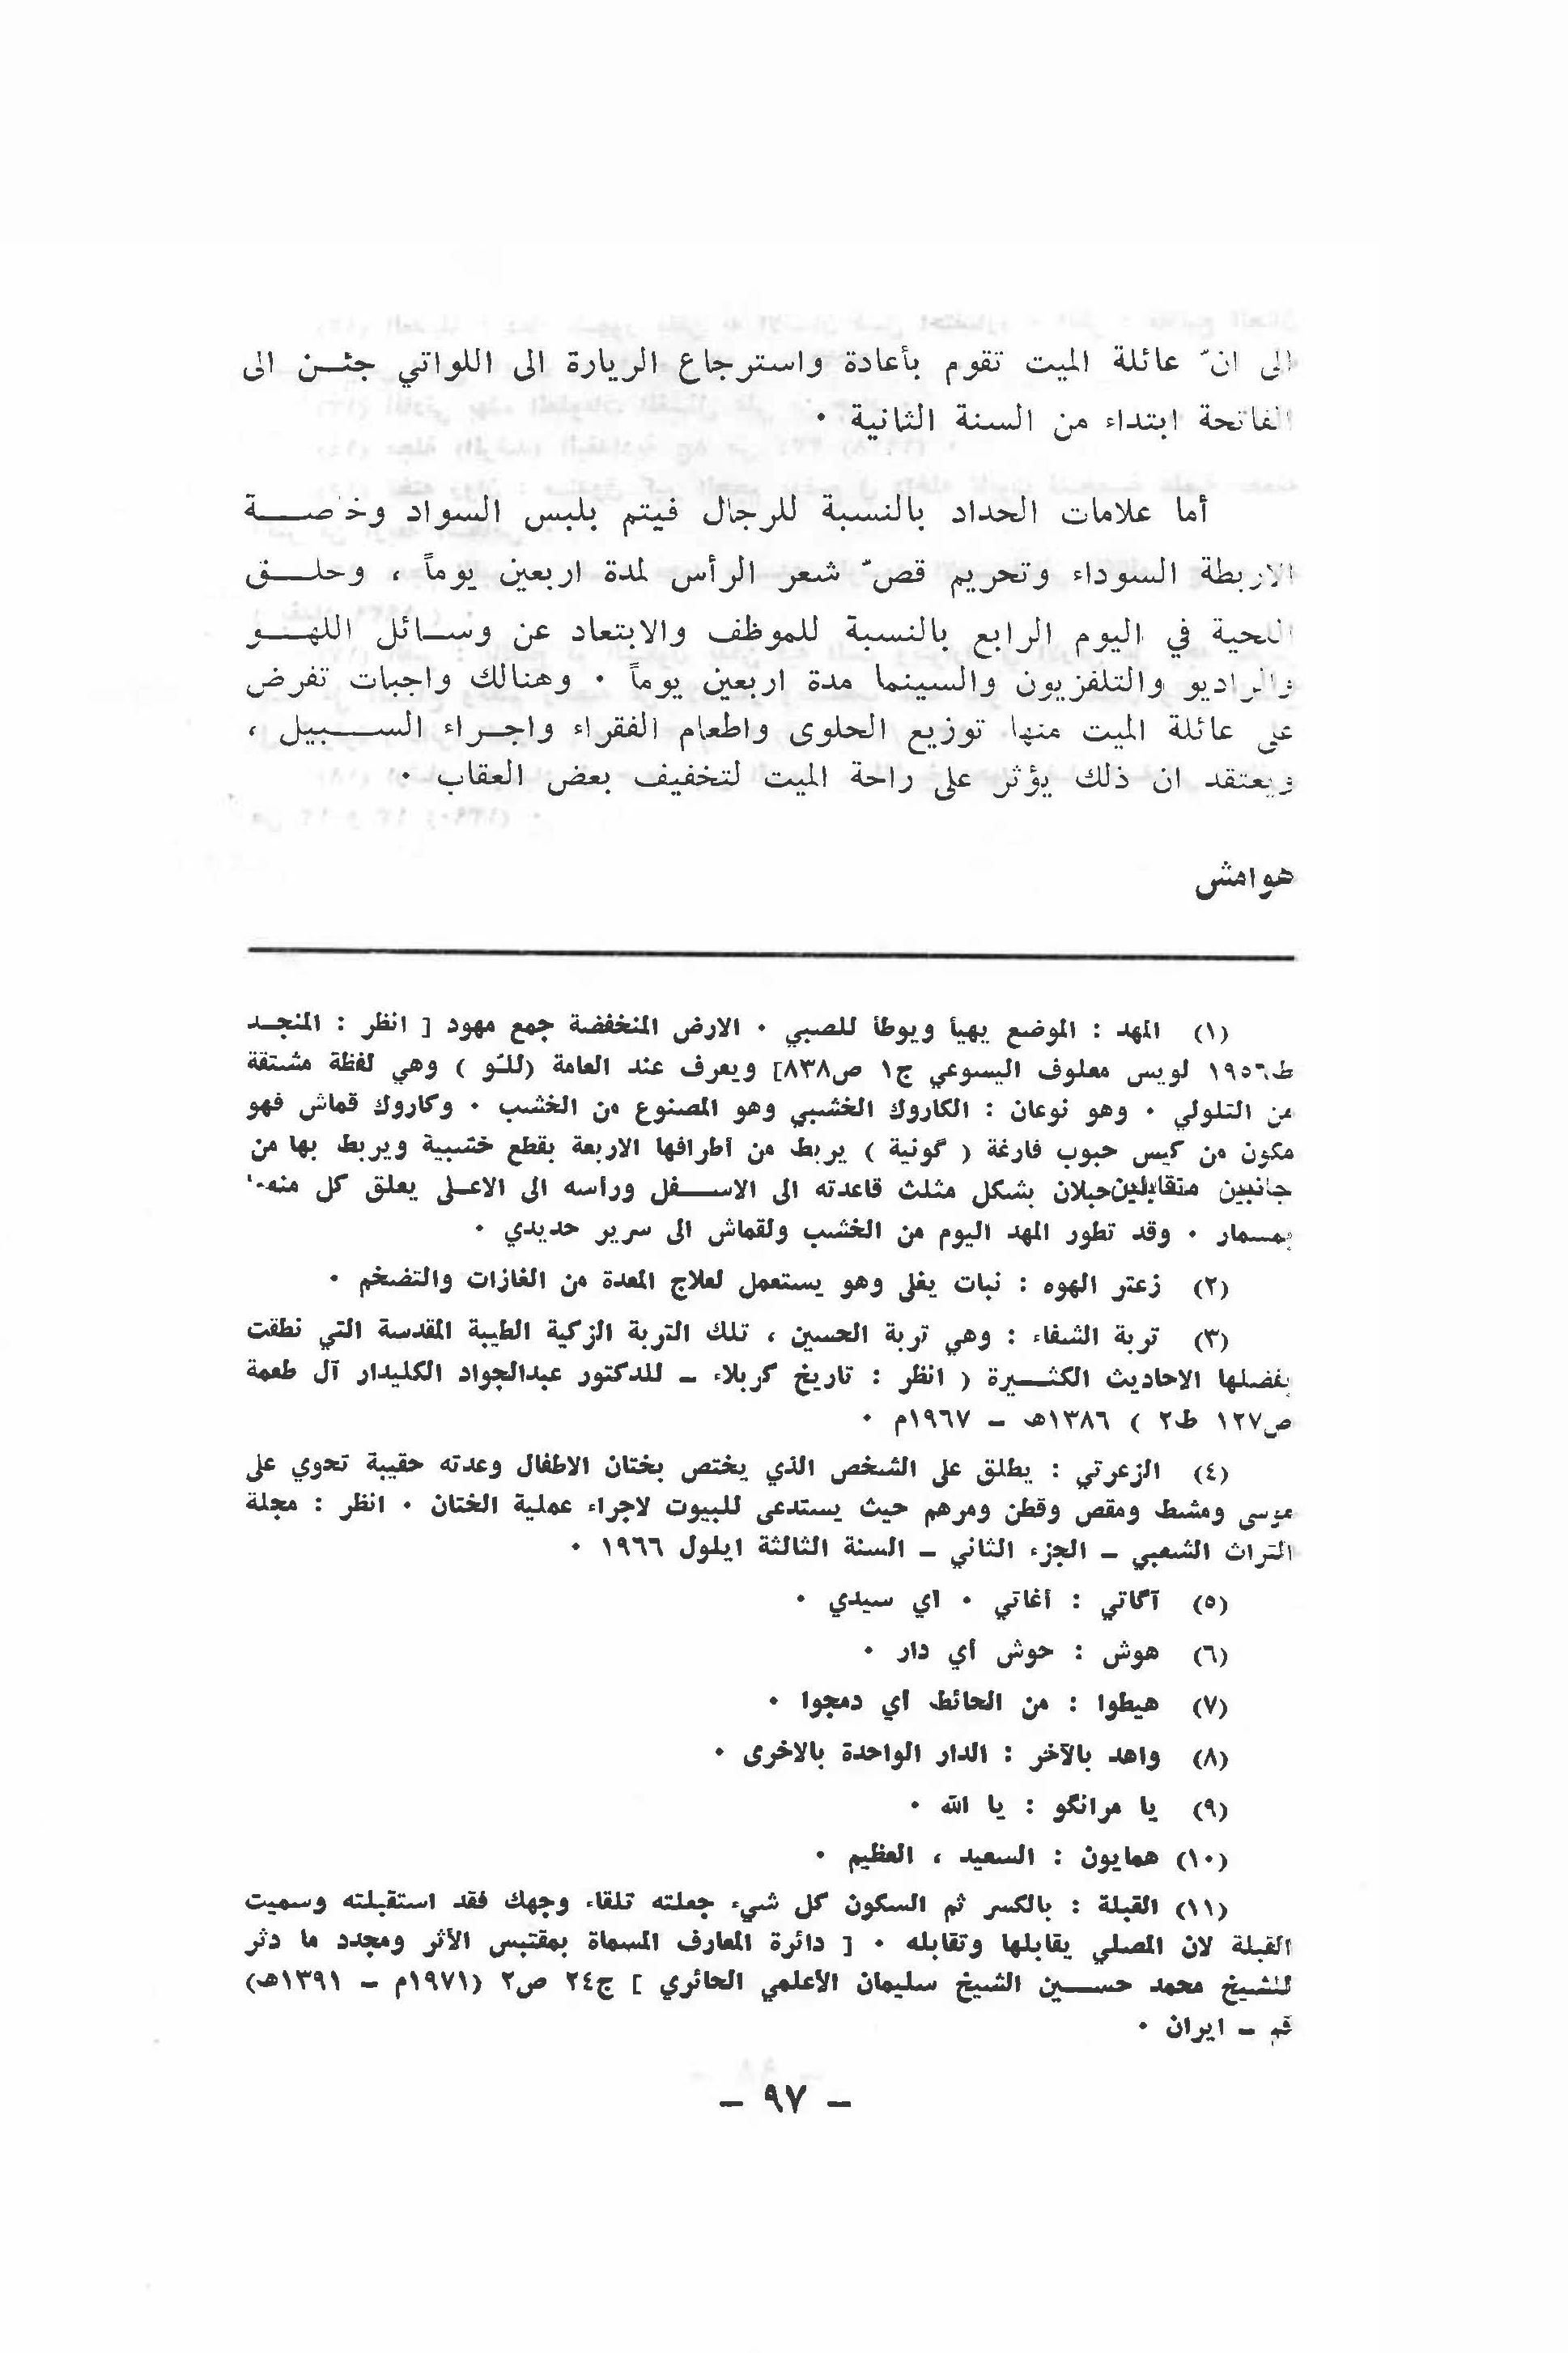 الى انّ عائلة الميت تقوم بأعادة واسترجاع الريارة الى اللواتي جئن الى
الفاتحة ابتداء من السنة الثانية ٠
أما علامات الحداد بالنسبة للرجال فيتم بلبس السواد وخاصة
الاربطة السوداء وتحريم قصّ شعر الرأس لمدة اربعين يوماً ، وحلق
اللحية في اليوم الرابع بالنسبة للموظف والابتعاد عن وسائل اللهو
والراديو والتلفزيون والسينما مدة اربعين يوماً ٠ وهنالك واجبات تفرض
على عائلة الميت منها توزيع الحلوى واطعام الفقراء واجراء السبيل ،
ويعتقد ان ذلك يؤثر على راحة الميت لتخفيف بعض العقاب ٠
هوامش
(١) المهد : الموضع يهيأ ويوطأ للصبي ٠ الارض المنخفضة جمع مهود [ انظر : المنجد
ط١٩٥٦ لويس معلوف اليسوعي ج١ ص٨٣٨] ويعرف عند العامة (للتو ) وهي لفظة مشتقة
من التلولي ٠ وهو نوعان : الكاروك الخشبي وهو المصنوع من الخشب ٠ وكاروك قماش فهو
مكون من كيس حبوب فارغة ( گونية ) يربط من أطرافها الاربعة بقطع خشبية ويربط بها من
جانبين متقابلين حبلان بشكل مثلث قاعدته الى الاسفل ورأسه الى الاعلى يعلق كل منهما
بمسمار ٠ وقد تطور المهد اليوم من الخشب ولقماش الى سرير حديدي ٠
(٢) زعتر الهوه : نبات يغلى وهو يستعمل لعلاج المعدة من الغازات والتضخم ٠
(٣) تربة الشفاء : وهي تربة الحسين ، تلك التربة الزكية الطيبة المقدسة التي نطقت
بفضلها الاحاديث الكثيرة ( انظر : تاريخ كربلاء – للدكتور عبدالجواد الكليدار آل طعمة
ص١٢٧ ط٢ ) ١٣٨٦هـ – ١٩٦٧م ٠
(٤) الزعرتي : يطلق على الشخص الذي يختص بختان الاطفال وعدته حقيبة تحوي على
موسى ومشط ومقص وقطن ومرهم حيث يستدعى للبيوت لاجراء عملية الختان ٠ انظر : مجلة
التراث الشعبي – الجزء الثاني – السنة الثالثة ايلول ١٩٦٦ ٠
(٥) آگاتي : أغاتي ٠ أي سيدي ٠
(٦) هوش : حوش أي دار ٠
(٧) هيطوا : من الحائط أي دمجوا ٠
(٨) واهد بالآخر : الدار الواحدة بالاخرى ٠
(٩) يا مرانگو : يا الله ٠
(١٠) همايون : السعيد ، العظيم ٠
(١١) القبلة : بالكسر ثم السكون كل شيء جعلته تلقاء وجهك فقد استقبلته وسميت
القبلة لان المصلي يقابلها وتقابله ٠ [ دائرة المعارف المسماة بمقتبس الأثر ومجدد ما دثر
للشيخ محمد حسين الشيخ سليمان الأعلمي الحائري ] ج٢٤ ص٢ (١٩٧١م – ١٣٩١هـ)
قم – ايران ٠
– ٩٧ –